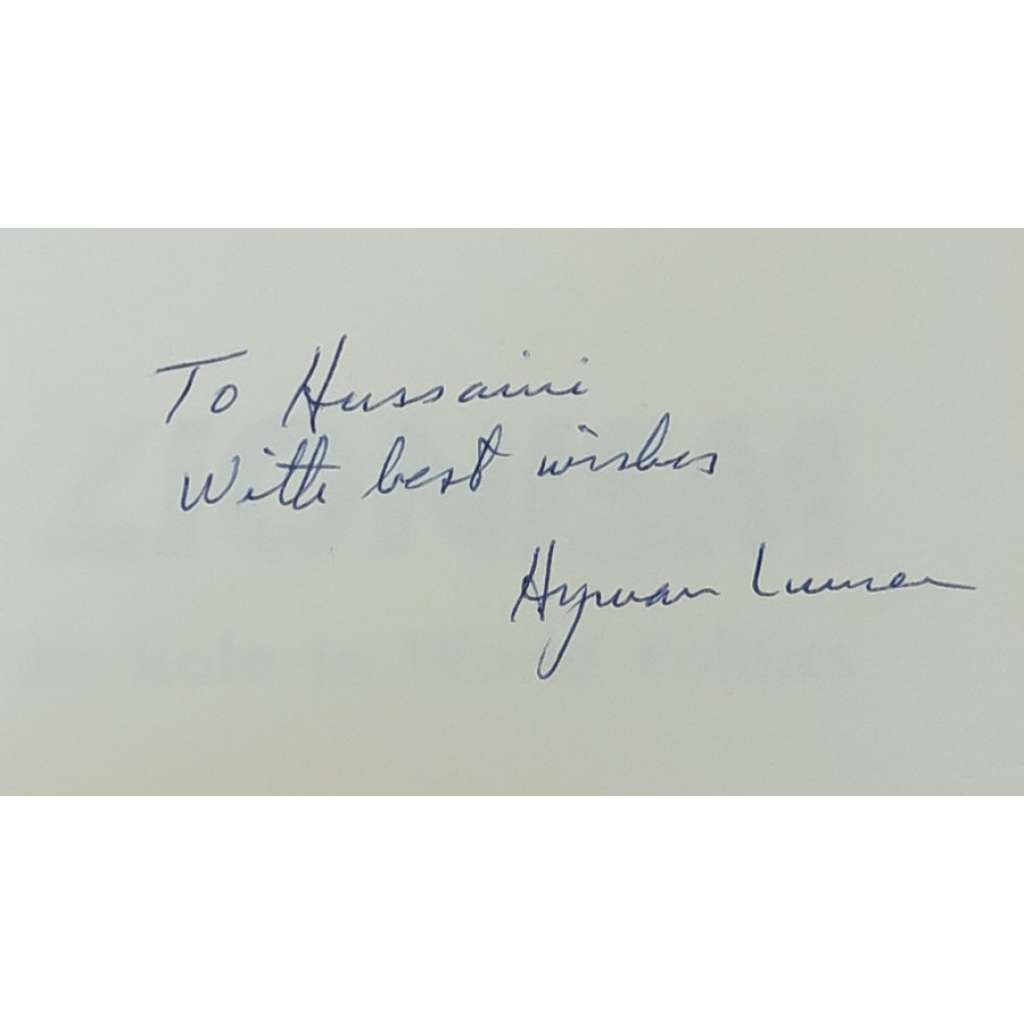 To Hussaini
With best wishes
Hyman Lumer